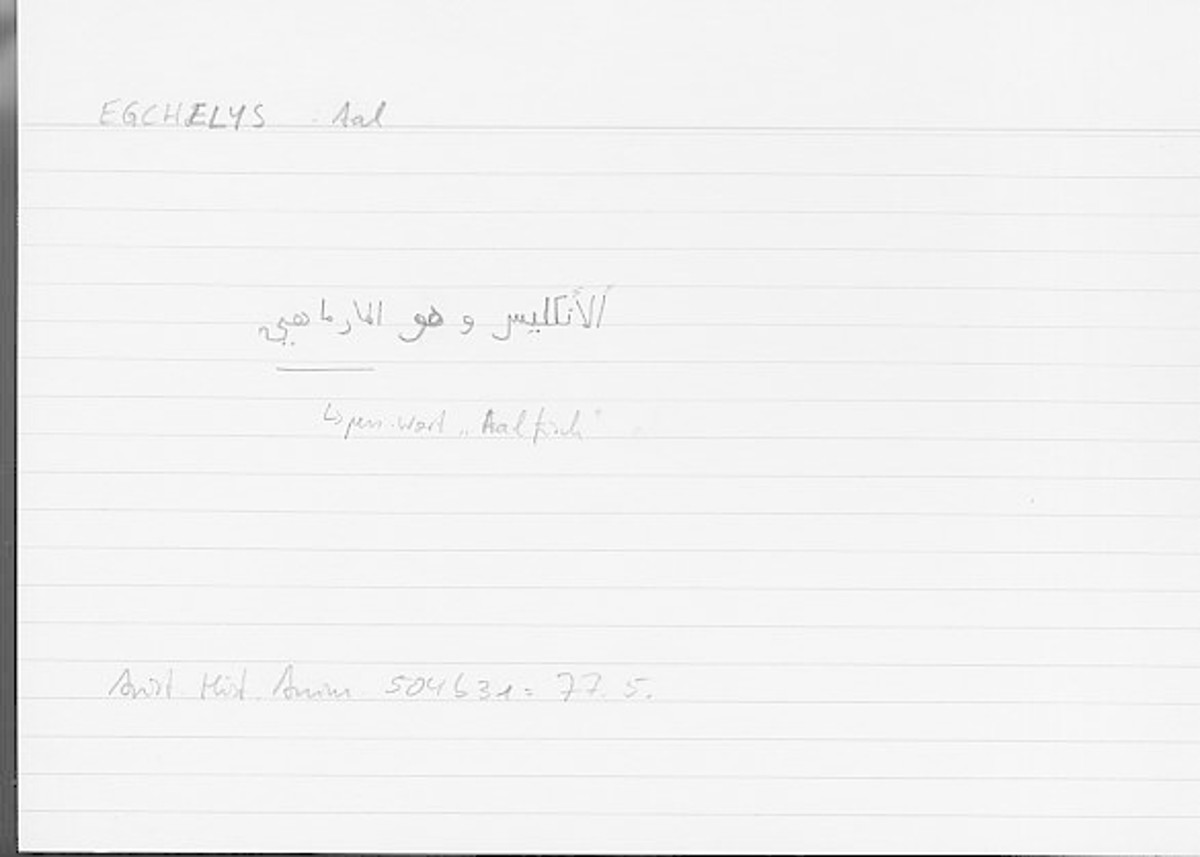 EGCHELYS . Aal
الأنكليس و هو المارماهي
↳ pers. Wort „Aalfisch"
Arist. Hist. Anim 504b31 = 77.5.